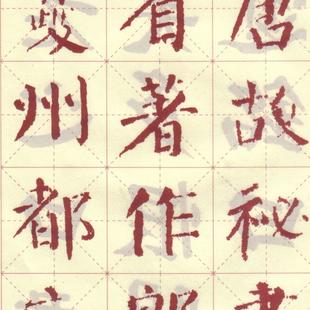 唐故祕書
省著作郎
夔州都